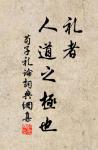 礼者
人道之極也
荀子礼論詞典網集